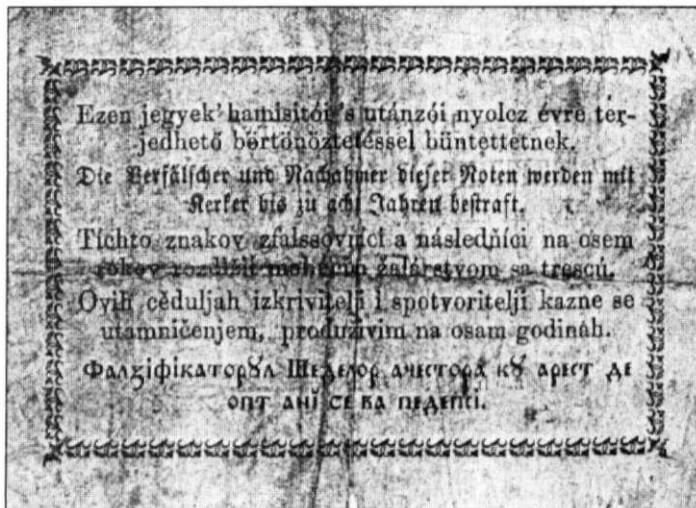 Ezen jegyek' hamisítói 's utánzói nyolcz évre ter-
jedhető börtönöztetéssel büntettetnek.
Die Verfälscher und Nachahmer dieser Noten werden mit
Kerker bis zu acht Jahren bestraft.
Tíchto znakov zfalssovňíci a následňíci na osem
rokov rozdlžiť mohúcím žalárstvom sa trescú.
Ovih cěduljah izkrivitelji i spotvoritelji kazne se
utamničenjem, produživim na osam godinah.
Фалзіфікаторꙋл Шеделор ачестора кꙋ арест де
опт анӥ се ва педепсі.